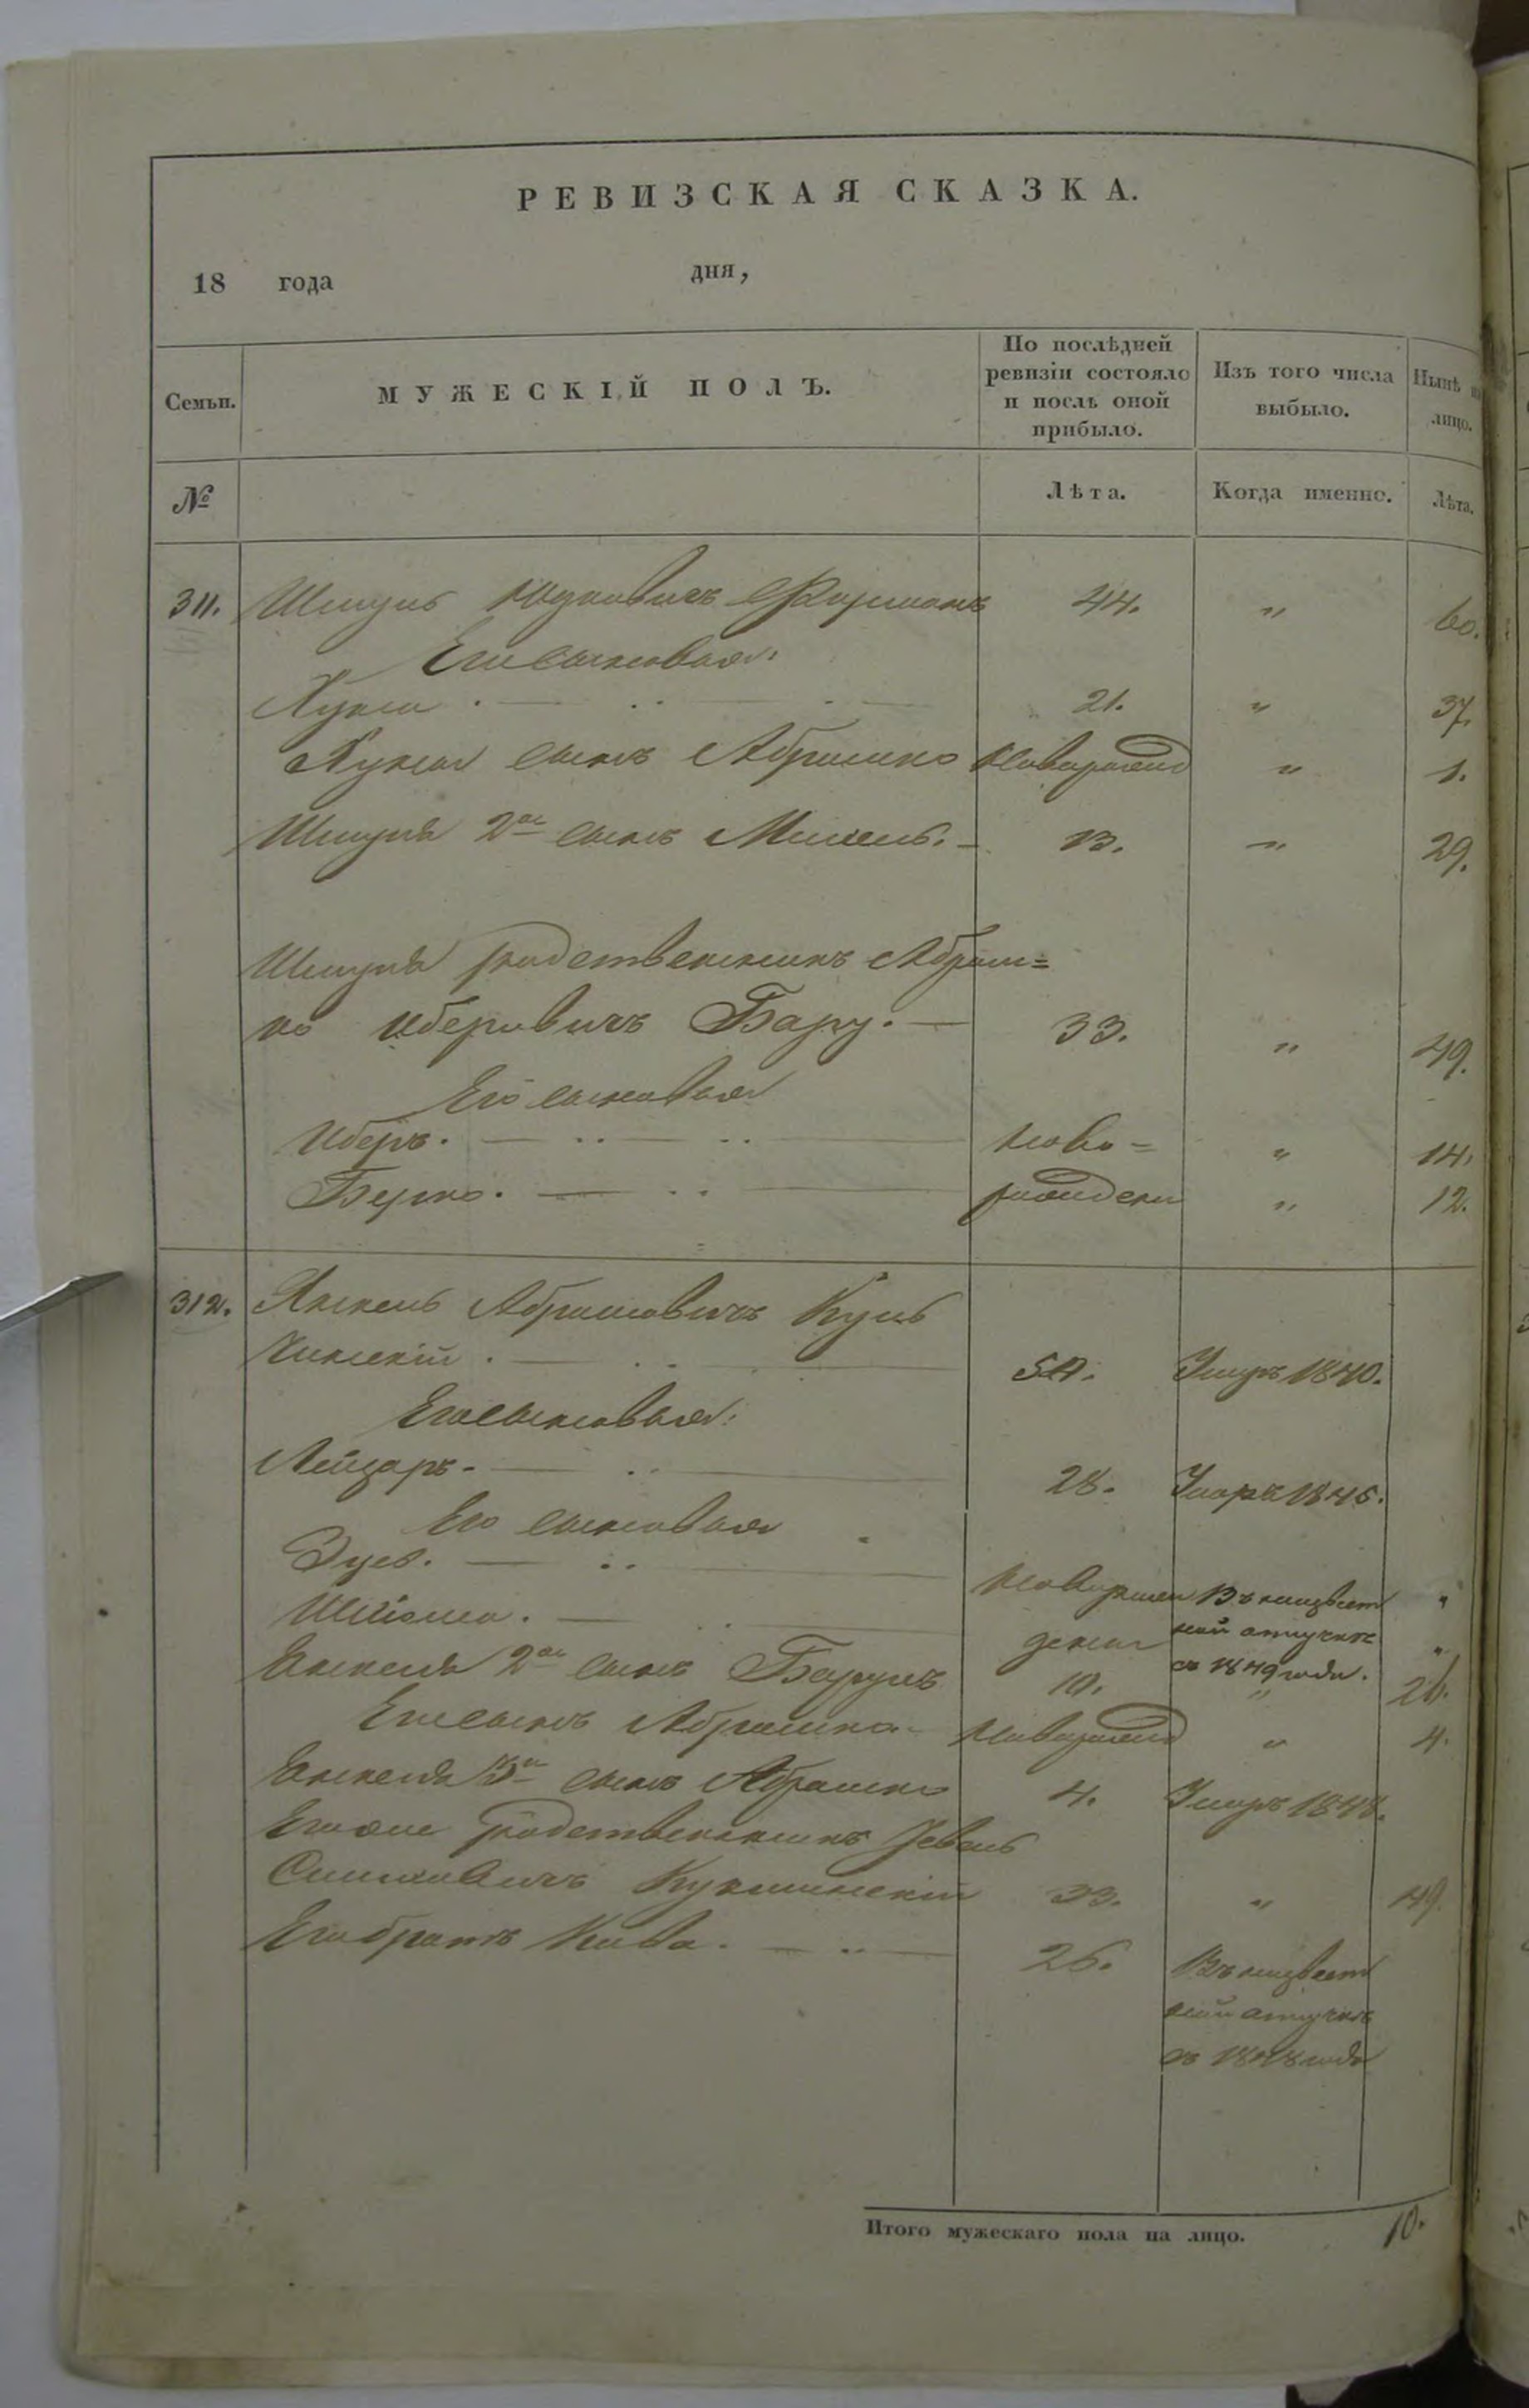 РЕВИЗСКАЯ СКАЗКА.
18 года дня,
Семьи. МУЖЕСКІЙ ПОЛЪ. По послѣдней ревизіи состояло и послѣ оной прибыло. Изъ того числа выбыло. Нынѣ на лицо.
№ Лѣта. Когда именно. Лѣта.
311. Шмуль 44. " 60.
Его сыновья:
21. " 37.
сынъ Абрамко новорожд " 1.
Шмуля 2й сынъ 13. " 29.
Шмуля родственникъ Абрам=
ко Иберовичъ 33. " 49.
Его сыновья
Иберъ. ново= " 14.
Берко. рожденн " 12.
312. Янкель Абрамовичъ
54. Умеръ 1840.
Его сыновья:
Лейзаръ. 28. Умеръ 1845.
Его сыновья
новорож Въ неизвест "
Шлiома. денн ной отлучке "
съ 1849 года.
Янкеля 2й сынъ Барухъ 10. " 26.
Его сынъ Абрамко новорожд " 4.
Янкеля 3й сынъ Абрамко 4. Умеръ 1848.
Его же родственникъ
33. " 49.
Его братъ 26. Въ неизвест
ной отлучке
съ 1848 года
Итого мужескаго пола на лицо. 10.